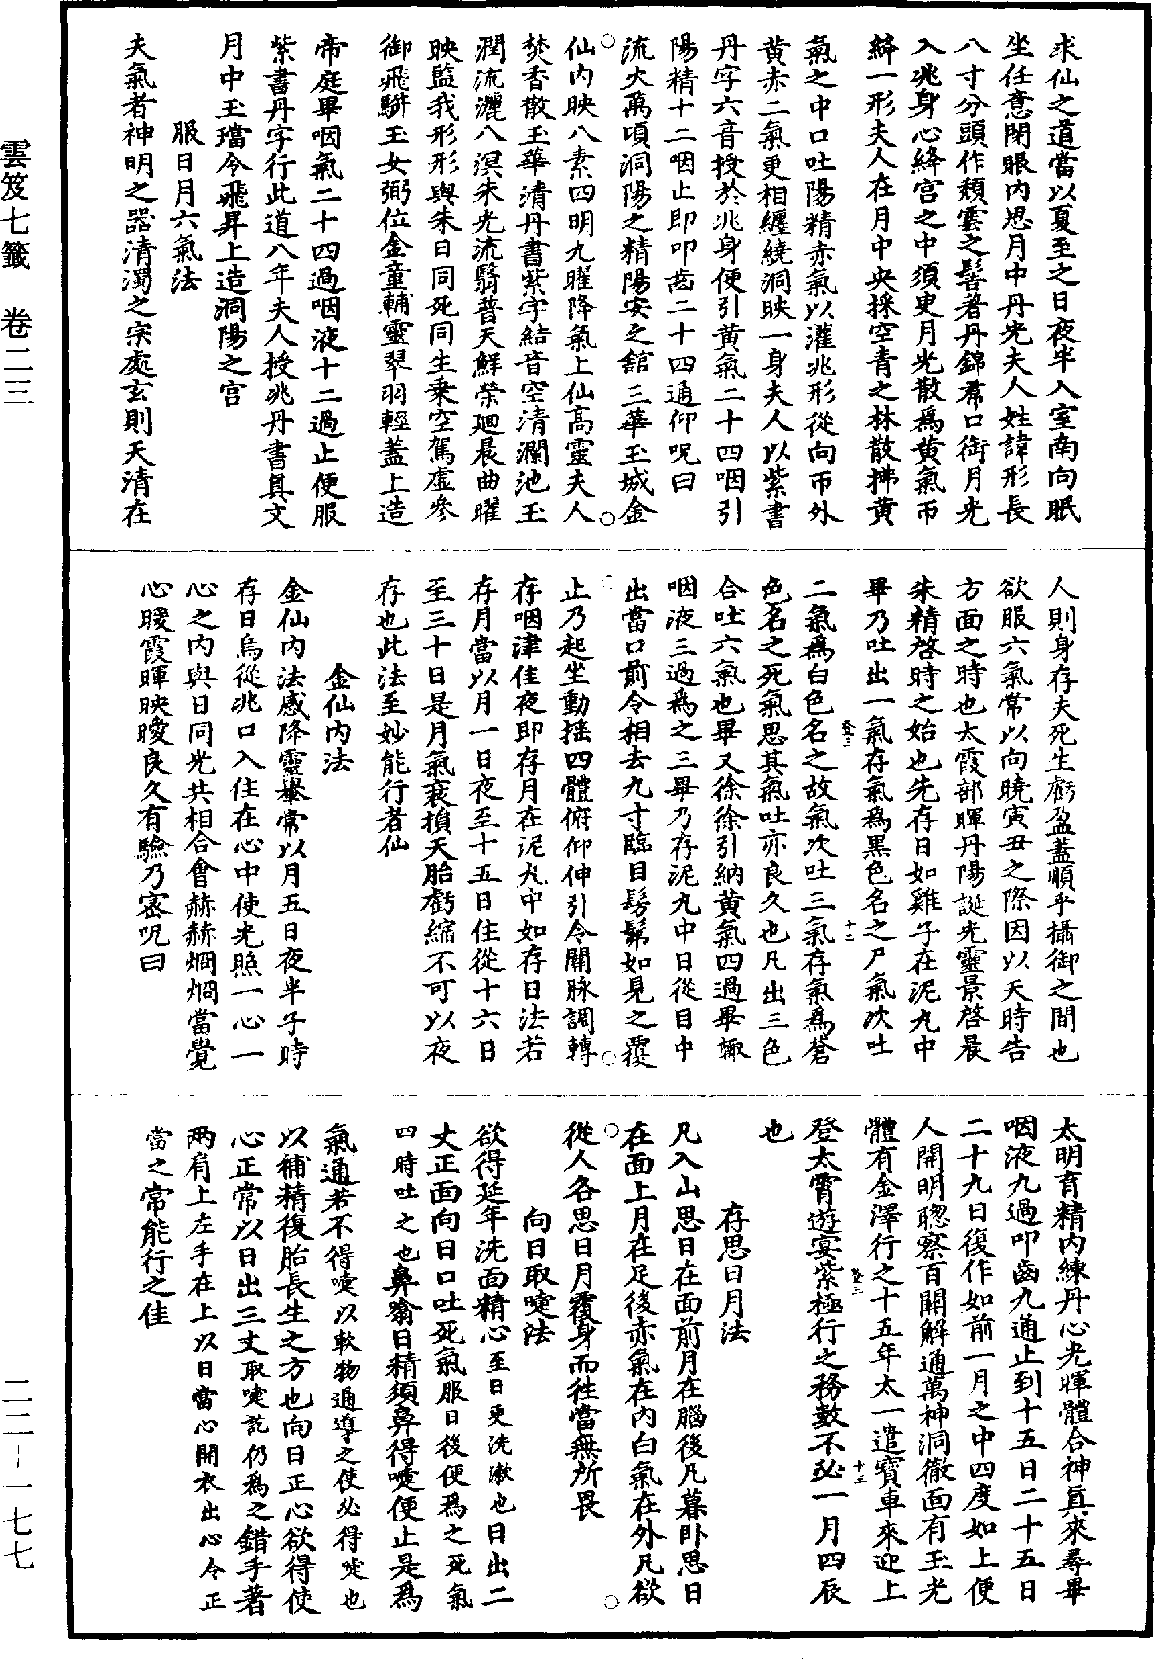 求仙之道當以夏至之日夜半入室南向眠
坐任意閉眼內思月中丹光夫人姓諱形長
八寸分頭作頹雲之髻著丹錦帬口銜月光
入兆身心絳宮之中須臾月光散爲黃氣帀
繞一形夫人在月中央採空青之林散拂黃
氣之中口吐陽精赤氣以灌兆形從向帀外
黃赤二氣更相纏繞洞映一身夫人以紫書
丹字六音授於兆身便引黃氣二十四咽引
陽精十二咽止即叩齒二十四通仰呪曰
流火萬頃洞陽之精陽安之館三華玉城金
仙內映八素四明九曜降氣上仙高靈夫人
焚香散玉華清丹書紫字結音空清瀾池玉
潤流灑八溟朱光流翳普天鮮榮迴晨曲曜
映監我形形與朱日同死同生乘空駕虛參
御飛騈玉女弼位金童輔靈翠羽輕蓋上造
帝庭畢咽氣二十四過咽液十二過止便服
紫書丹字行此道八年夫人授兆丹書真文
月中玉璫令飛昇上造洞陽之宮
服日月六氣法
夫氣者神明之器清濁之宗處玄則天清在
人則身存夫死生虧盈蓋順乎攝御之間也
欲服六氣常以向曉寅丑之際因以天時告
方面之時也太霞部暉丹陽誕光靈景啓晨
朱精啓時之始也先存日如雞子在泥丸中
畢乃吐出一氣存氣爲黑色名之尸氣次吐
二氣爲白色名之故氣次吐三氣存氣爲蒼
色名之死氣思其氣吐亦良久也凡出三色
合吐六氣也畢又徐徐引納黃氣四過畢輒
咽液三過爲之三畢乃存泥丸中日從目中
出當口前令相去九寸臨目髣髴如見之覆
止乃起坐動搖四體俯仰伸引令關脉調轉
存咽津佳夜即存月在泥丸中如存日法若
存月當以月一日夜至十五日住從十六日
至三十日是月氣衰損天胎虧縮不可以夜
存也此法至妙能行者仙
金仙內法
金仙內法感降靈轝常以月五日夜半子時
存日烏從兆口入住在心中使光照一心一
心之內與日同光共相合會赫赫烱烱當覺
心暖霞暉映曖良久有驗乃密呪曰
太明育精內練丹心光暉體合神真來尋畢
咽液九過叩齒九通止到十五日二十五日
二十九日復作如前一月之中四度如上便
人開明聰察百關解通萬神洞徹面有玉光
體有金澤行之十五年太一遣寶車來迎上
登太霄遊宴紫極行之務數不必一月四辰
也
存思日月法
凡入山思日在面前月在腦後凡暮卧思日
在面上月在足後赤氣在內白氣在外凡欲
從人各思日月覆身而往當無所畏
向日取嚏法
欲得延年洗面精心至日更洗漱也日出二
丈正面向日口吐死氣服日後便爲之死氣
四時吐之也鼻噏日精須鼻得嚏便止是爲
氣通若不得嚏以軟物通導之使必得嚏也
以補精復胎長生之方也向日正心欲得使
心正常以日出三丈取嚏訖仍爲之錯手著
兩肩上左手在上以日當心開衣出心令正
當之常能行之佳
雲笈七籤　卷二三
二二－一七七